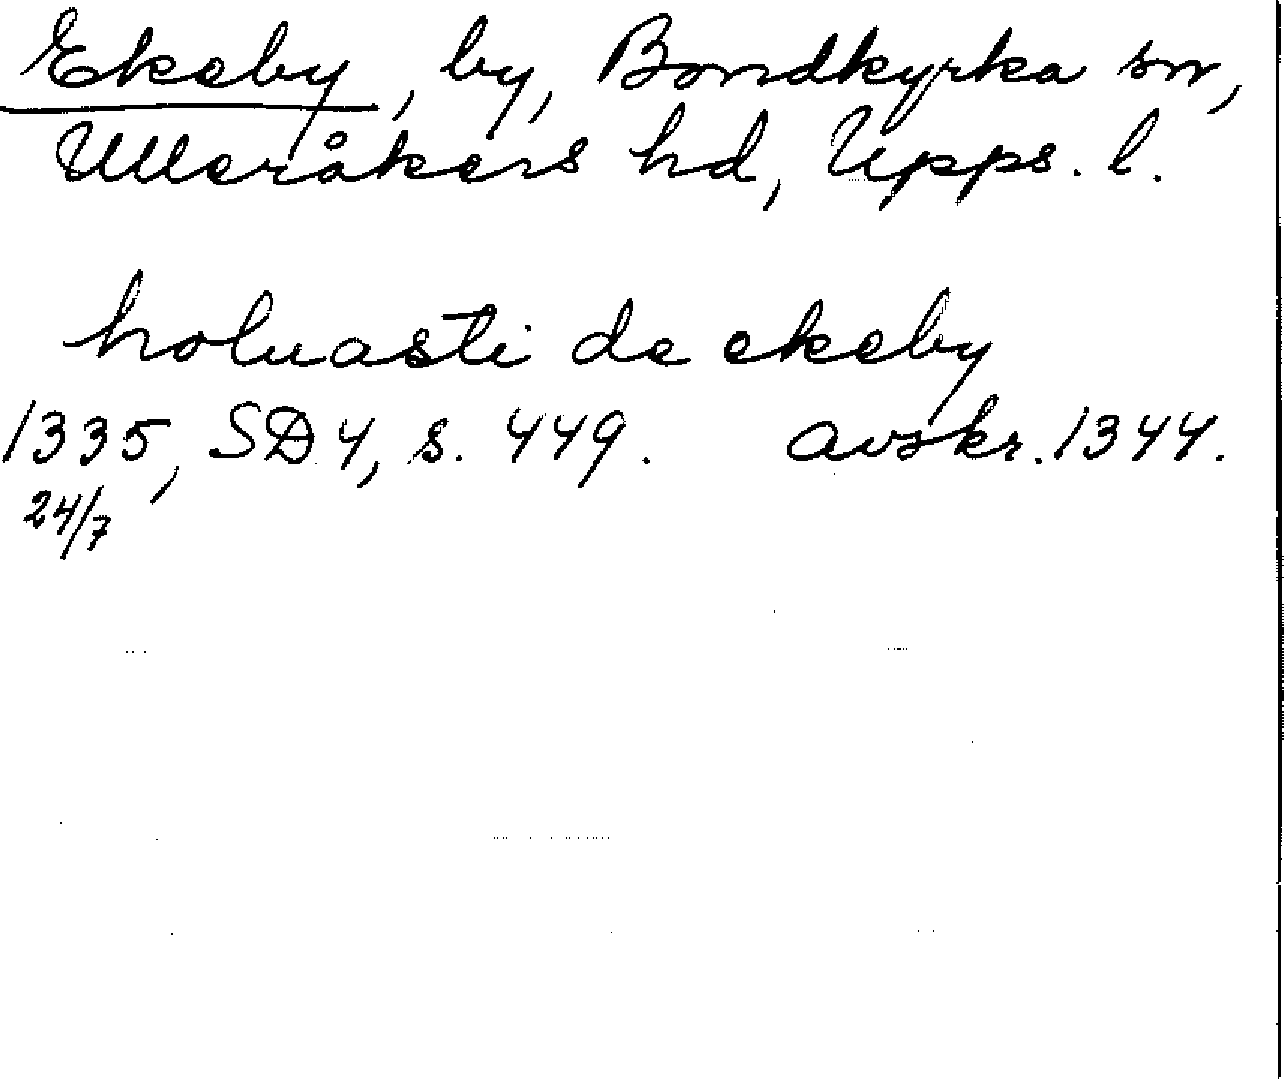 Ekeby, by, Bondkyrka sn,
Ulleråkers hd, Upps. l.
holuasti de ekeby
1335, SD 4, s. 449. avskr. 1344.
24/7